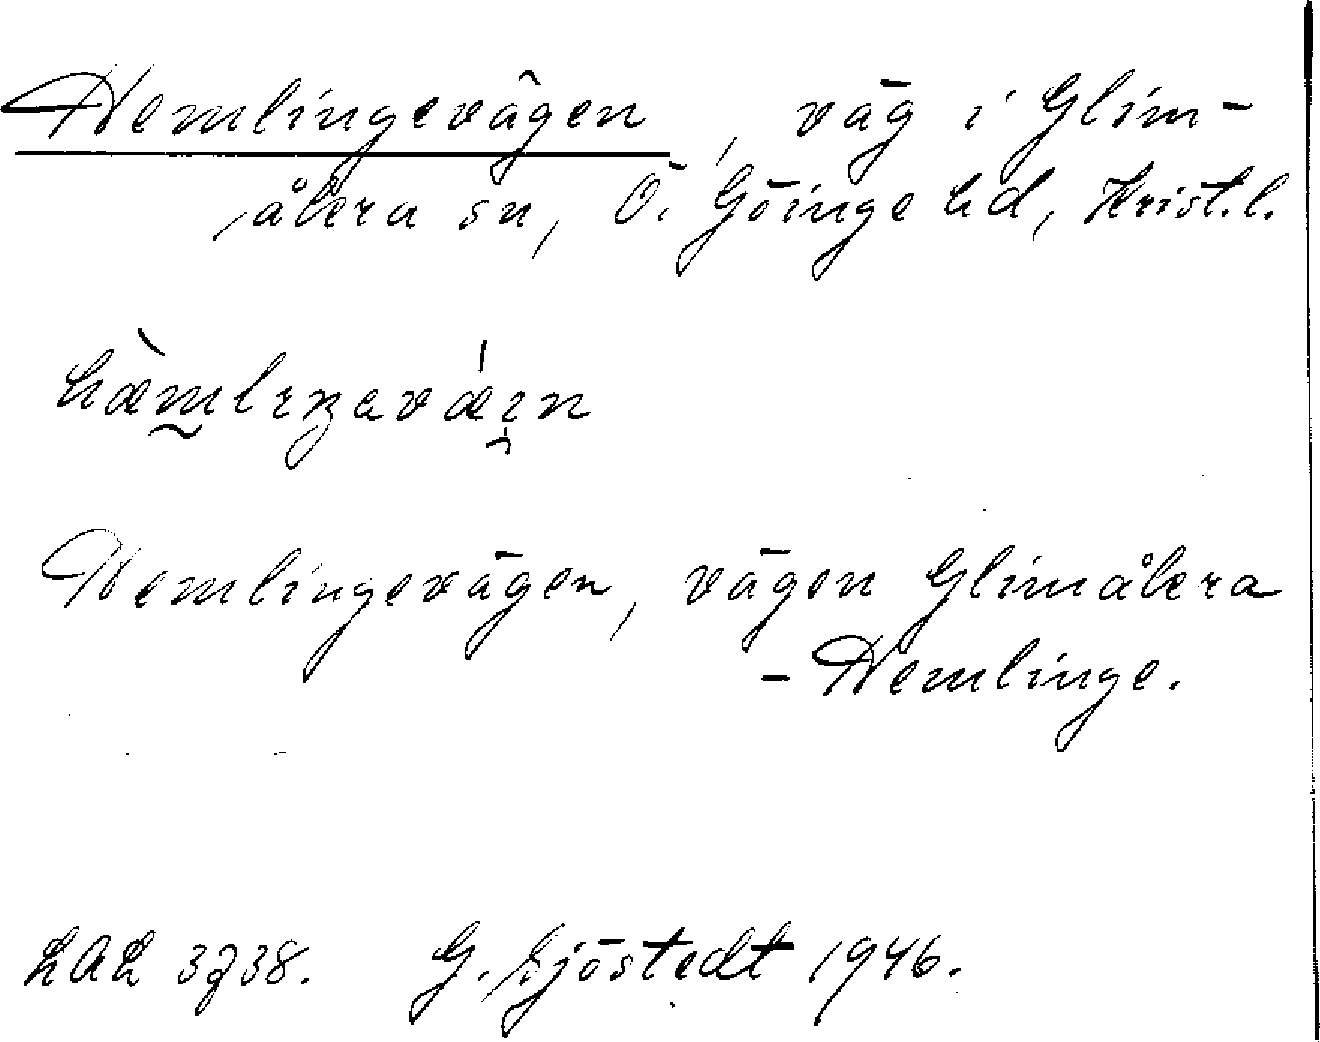 Hemlingevägen, väg i Glim-
åkra sn, Ö. Göinge hd, Krist.l.
Hemlingevägen, vägen Glimåkra
- Hemlinge.
LAL 3738. G. Sjöstedt 1946.